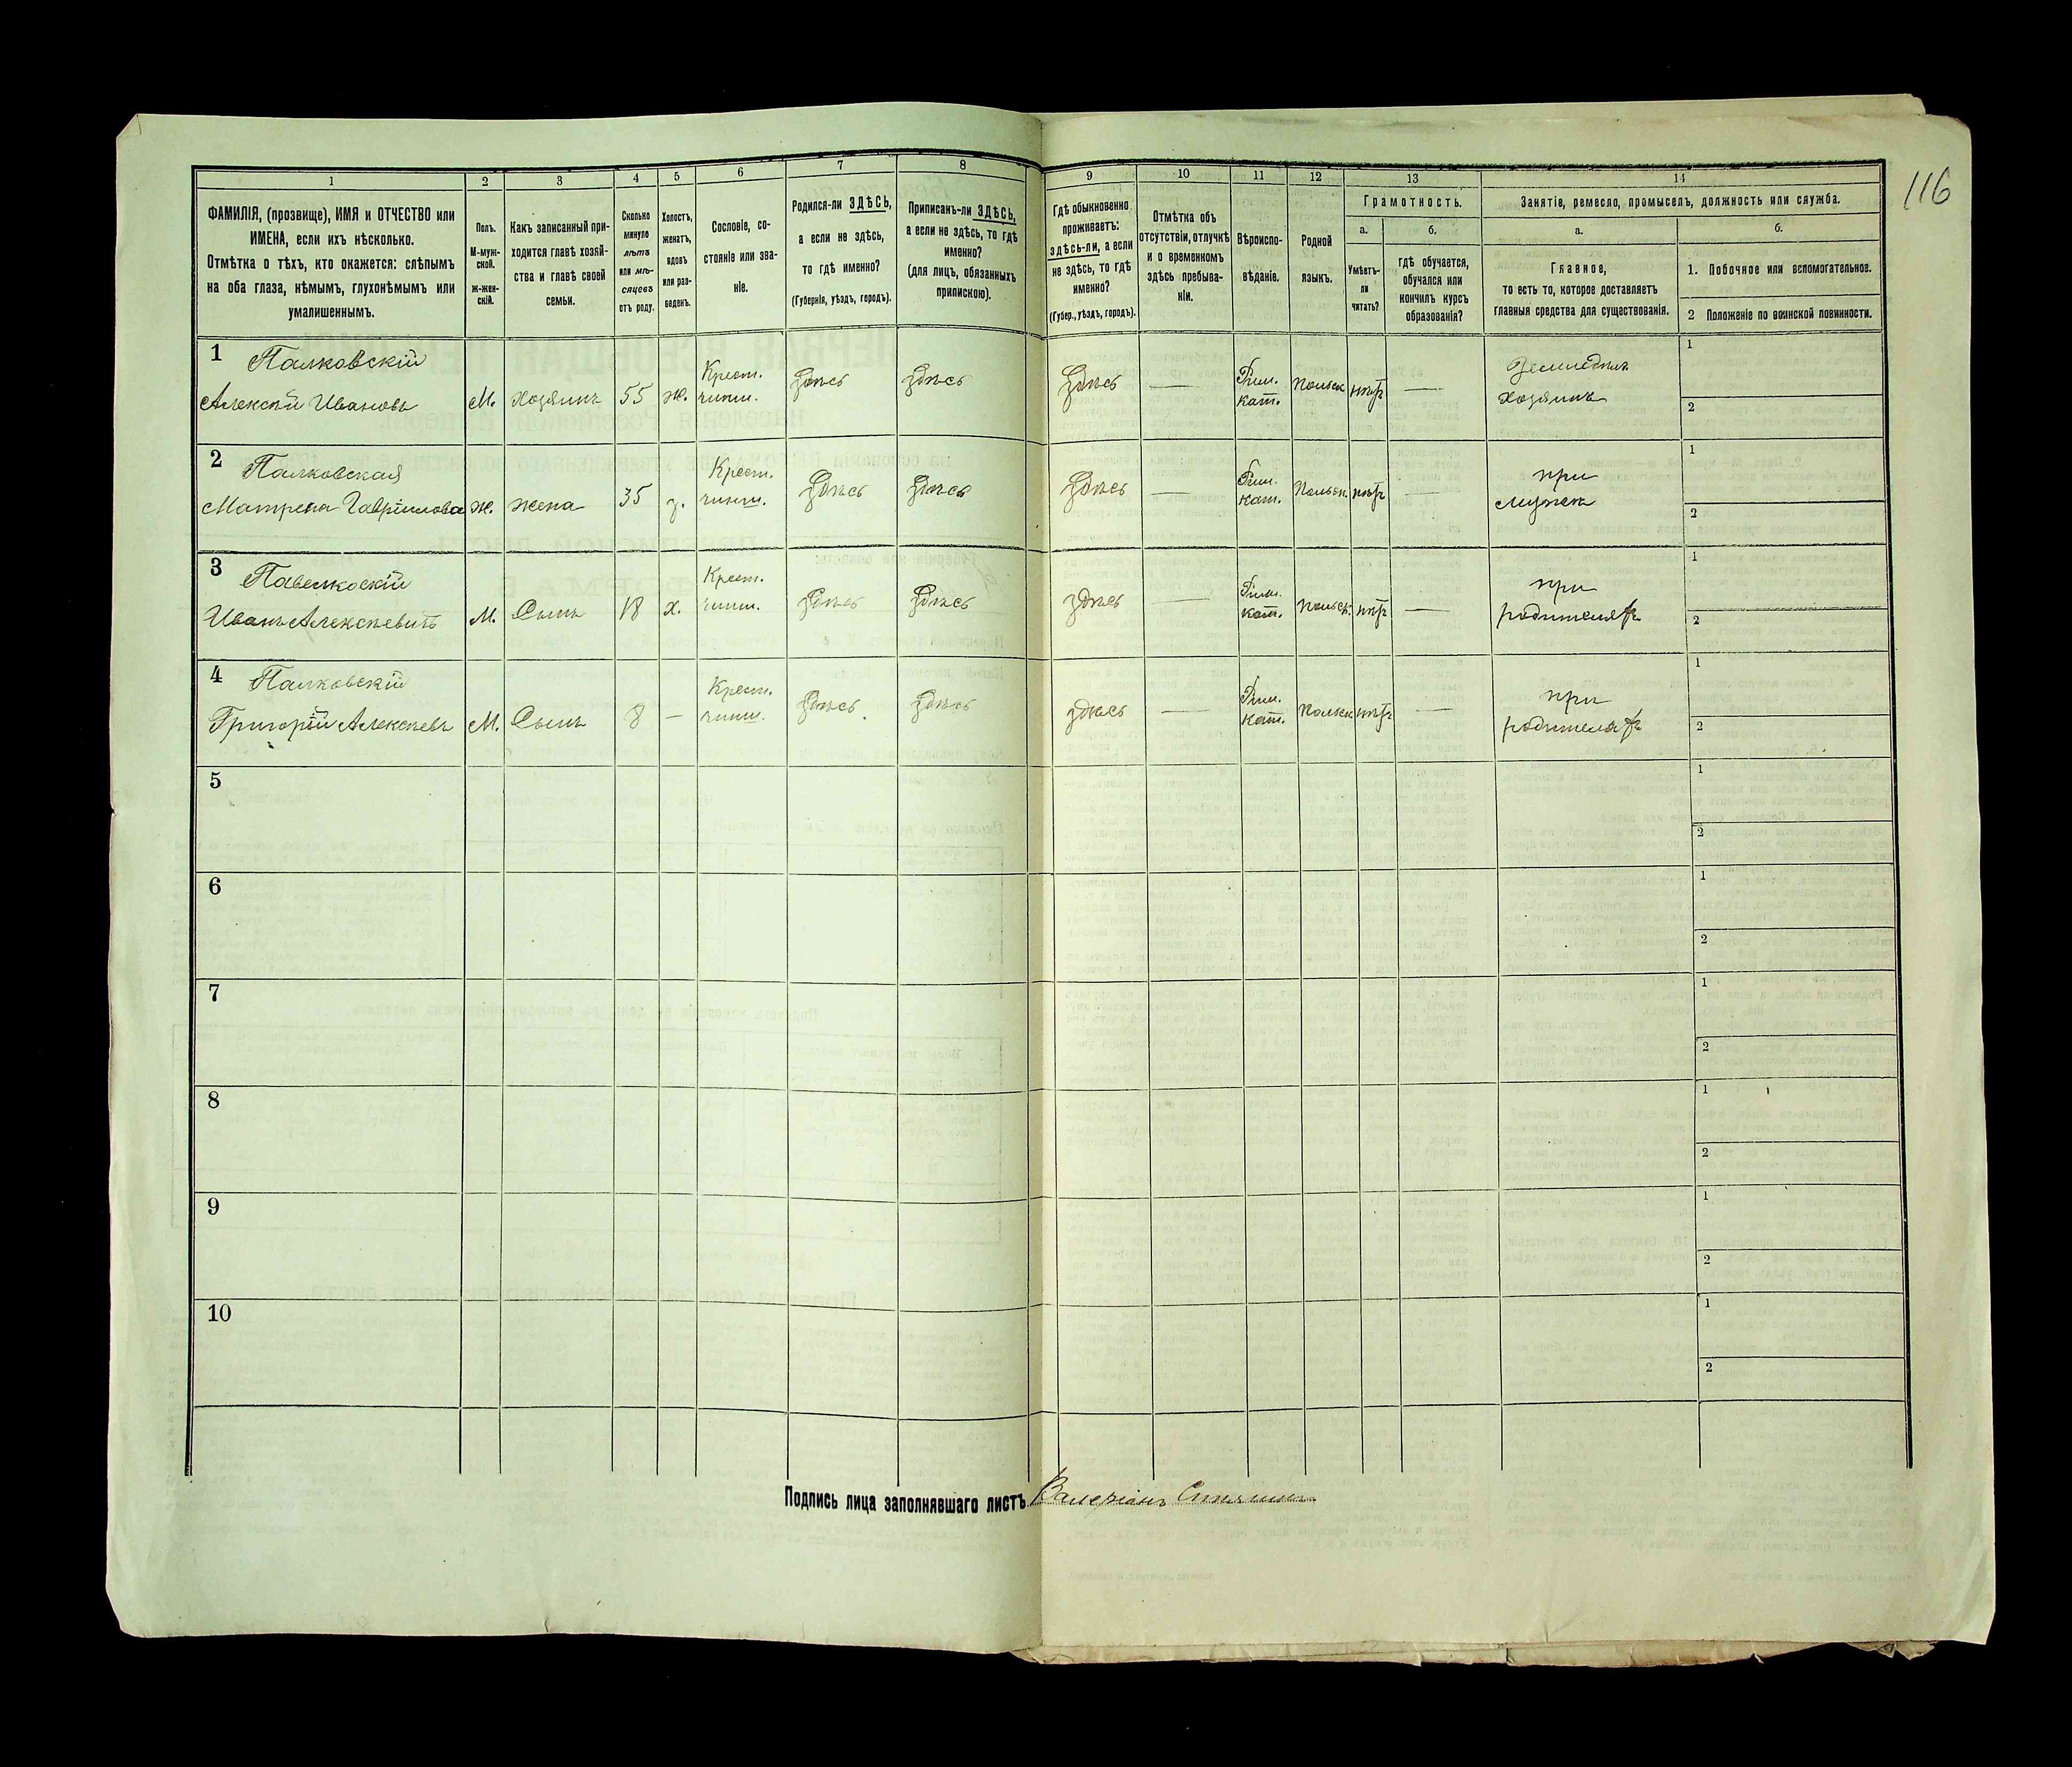 116
1 2 3 4 5 6 7 8 9 10 11 12 13 14
ФАМИЛІЯ, (прозвище), ИМЯ и ОТЧЕСТВО или
ИМЕНА, если ихъ нѣсколько.
Отмѣтка о тѣхъ, кто окажется: слѣпымъ
на оба глаза, нѣмымъ, глухонѣмымъ или
умалишеннымъ.
Полъ.
М-муж-
ской.
ж-жен-
скій.
Какъ записанный при-
ходится главѣ хозяй-
ства и главѣ своей
семьи.
Сколько
минуло
лѣтъ
или мѣ-
сяцевъ
отъ роду.
Холостъ,
женатъ,
вдовъ
или раз-
веденъ.
Сословіе, со-
стояніе или зва-
ніе.
Родился-ли ЗДѢСЬ,
а если не здѣсь,
то гдѣ именно?
(Губернія, уѣздъ, городъ).
Приписанъ-ли ЗДѢСЬ,
а если не здѣсь, то гдѣ
именно?
(для лицъ, обязанныхъ
припискою).
Гдѣ обыкновенно
проживаетъ:
здѣсь-ли, а если
не здѣсь, то гдѣ
именно?
(Губер., уѣздъ, городъ).
Отмѣтка объ
отсутствіи, отлучкѣ
и о временномъ
здѣсь пребыва-
ніи.
Вѣроиспо-
вѣданіе.
Родной
языкъ.
Грамотность.
а.
Умѣетъ-
ли
читать?
б.
гдѣ обучается,
обучался или
кончилъ курсъ
образованія?
Занятіе, ремесло, промыселъ, должность или служба.
а.
Главное,
то есть то, которое доставляетъ
главныя средства для существованія.
б.
1. Побочное или вспомогательное.
2 Положеніе по воинской повинности.
1 Палковскій
Алексѣй Ивановъ М. хозяинъ 55 ж. Крест. здѣсь здѣсь здѣсь — Рим. кат. польск нѣтъ — Земледѣл. хозяинъ 1 2
2 Палковская
Матрена Гавріилова ж. жена 35 з. Крест. здѣсь здѣсь здѣсь — Рим. кат. польск нѣтъ — при мужѣ 1 2
3 Павелкоскій
Иванъ Алексѣевичъ М. Сынъ 18 х. Крест. здѣсь здѣсь здѣсь — Рим. кат. польск. нѣтъ — при родителяхъ 1 2
4 Палковскій
Григорій Алексѣевъ М. Сынъ 8 — Крест. здѣсь здѣсь здѣсь — Рим. кат. польск нѣтъ — при родителяхъ 1 2
5 1 2
6 1 2
7 1 2
8 1 2
9 1 2
10 1 2
Подпись лица заполнявшаго листъ Валеріанъ